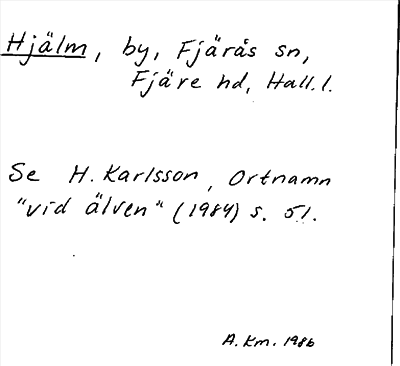 Hjälm, by, Fjärås sn,
Fjäre hd, Hall. l.
Se H. Karlsson, Ortnamn
"vid älven" (1984) s. 51.
A. Km. 1986